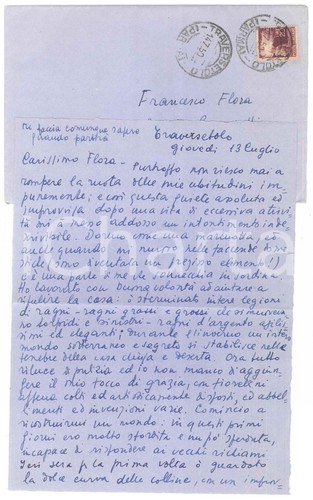 TRAVERSETOLO
(PARMA)
14.7.50
TRAVERSETOLO
(PARMA)
Francesco Flora
Mi faccia comunque sapere
quando partirà
Traversetolo
Giovedì 13 Luglio
Carissimo Flora - Purtroppo non riesco mai a
rompere la ruota delle mie abitudini im-
punemente; e così questa quiete assoluta ed
improvvisa dopo una vita di eccessiva attivi-
tà mi à messo addosso un indontimento inde-
scrivibile. Dormo come una marmotta, ed
anche quando mi muovo nelle faccende di ca-
sa (che sono diventata un prezioso elemento!)
c'è una parte di me che sonnecchia in sordina.
Ho lavorato con buona volontà ad aiutare a
ripulire la casa: ò sterminato intere legioni
di ragni - ragni grossi e grossi che si muoveva-
no torpidi e sinistri - ragni d'argento agilis-
simi ed eleganti; durante l'inverno un intero
mondo sotterraneo e segreto si stabilisce nelle
tenebre della casa chiusa e deserta. Ora tutto
riluce di pulizia ed io non manco di aggiun-
gere il mio tocco di grazia, con fiorellini
appena colti ed artisticamente disposti, ed abbel-
limenti ed invenzioni varie. Comincio a
ricostruirmi un mondo: in questi primi
giorni ero molto stordita e un po' sperduta,
incapace di rispondere ai vecchi richiami.
Ieri sera per la prima volta ò guardato
la dolce curva delle colline, con un improv-